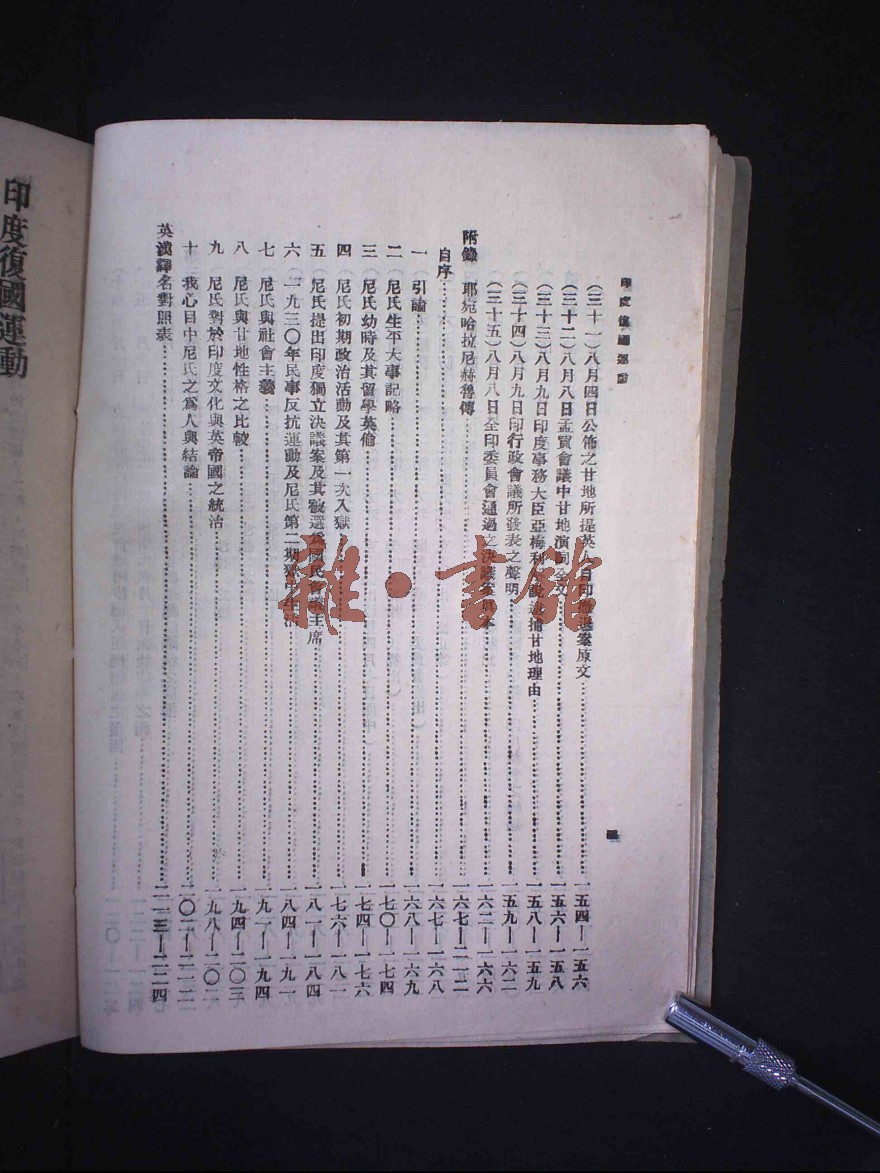 印度復國運動
(三十一)八月四日公佈之甘地所提英人自印撤退案原文 一五四—一五六
(三十二)八月八日孟買會議中甘地演詞全文 一五六—一五八
(三十三)八月九日印度事務大臣亞梅利 述逮捕甘地理由 一五八—一五九
(三十四)八月九日印行政會議所發表之聲明 一五九—一六二
(三十五)八月八日全印委員會通過之決議案原本 一六二—一六六
附錄 耶宛哈拉尼赫魯傳 一六七—二一二
自序 一六七—一六八
一 引論 一六八—一六九
二 尼氏生平大事記略 一七〇—一七四
三 尼氏幼時及其留學英倫 一七四—一七六
四 尼氏初期政治活動及其第一次入獄 一七六—一八一
五 尼氏提出印度獨立決議案及其被選為國民會議主席 一八一—一八四
六 一九三〇年民事反抗運動及尼氏第二期獄中生活 一八四—一九一
七 尼氏與社會主義 一九一—一九四
八 尼氏與甘地性格之比較 一九四—二〇三
九 尼氏對於印度文化與英帝國之統治 一九八—二〇二
十 我心目中尼氏之為人與結論 二〇二—二一二
英漢譯名對照表 二一三—二二四
印度復國運動
雜·書館